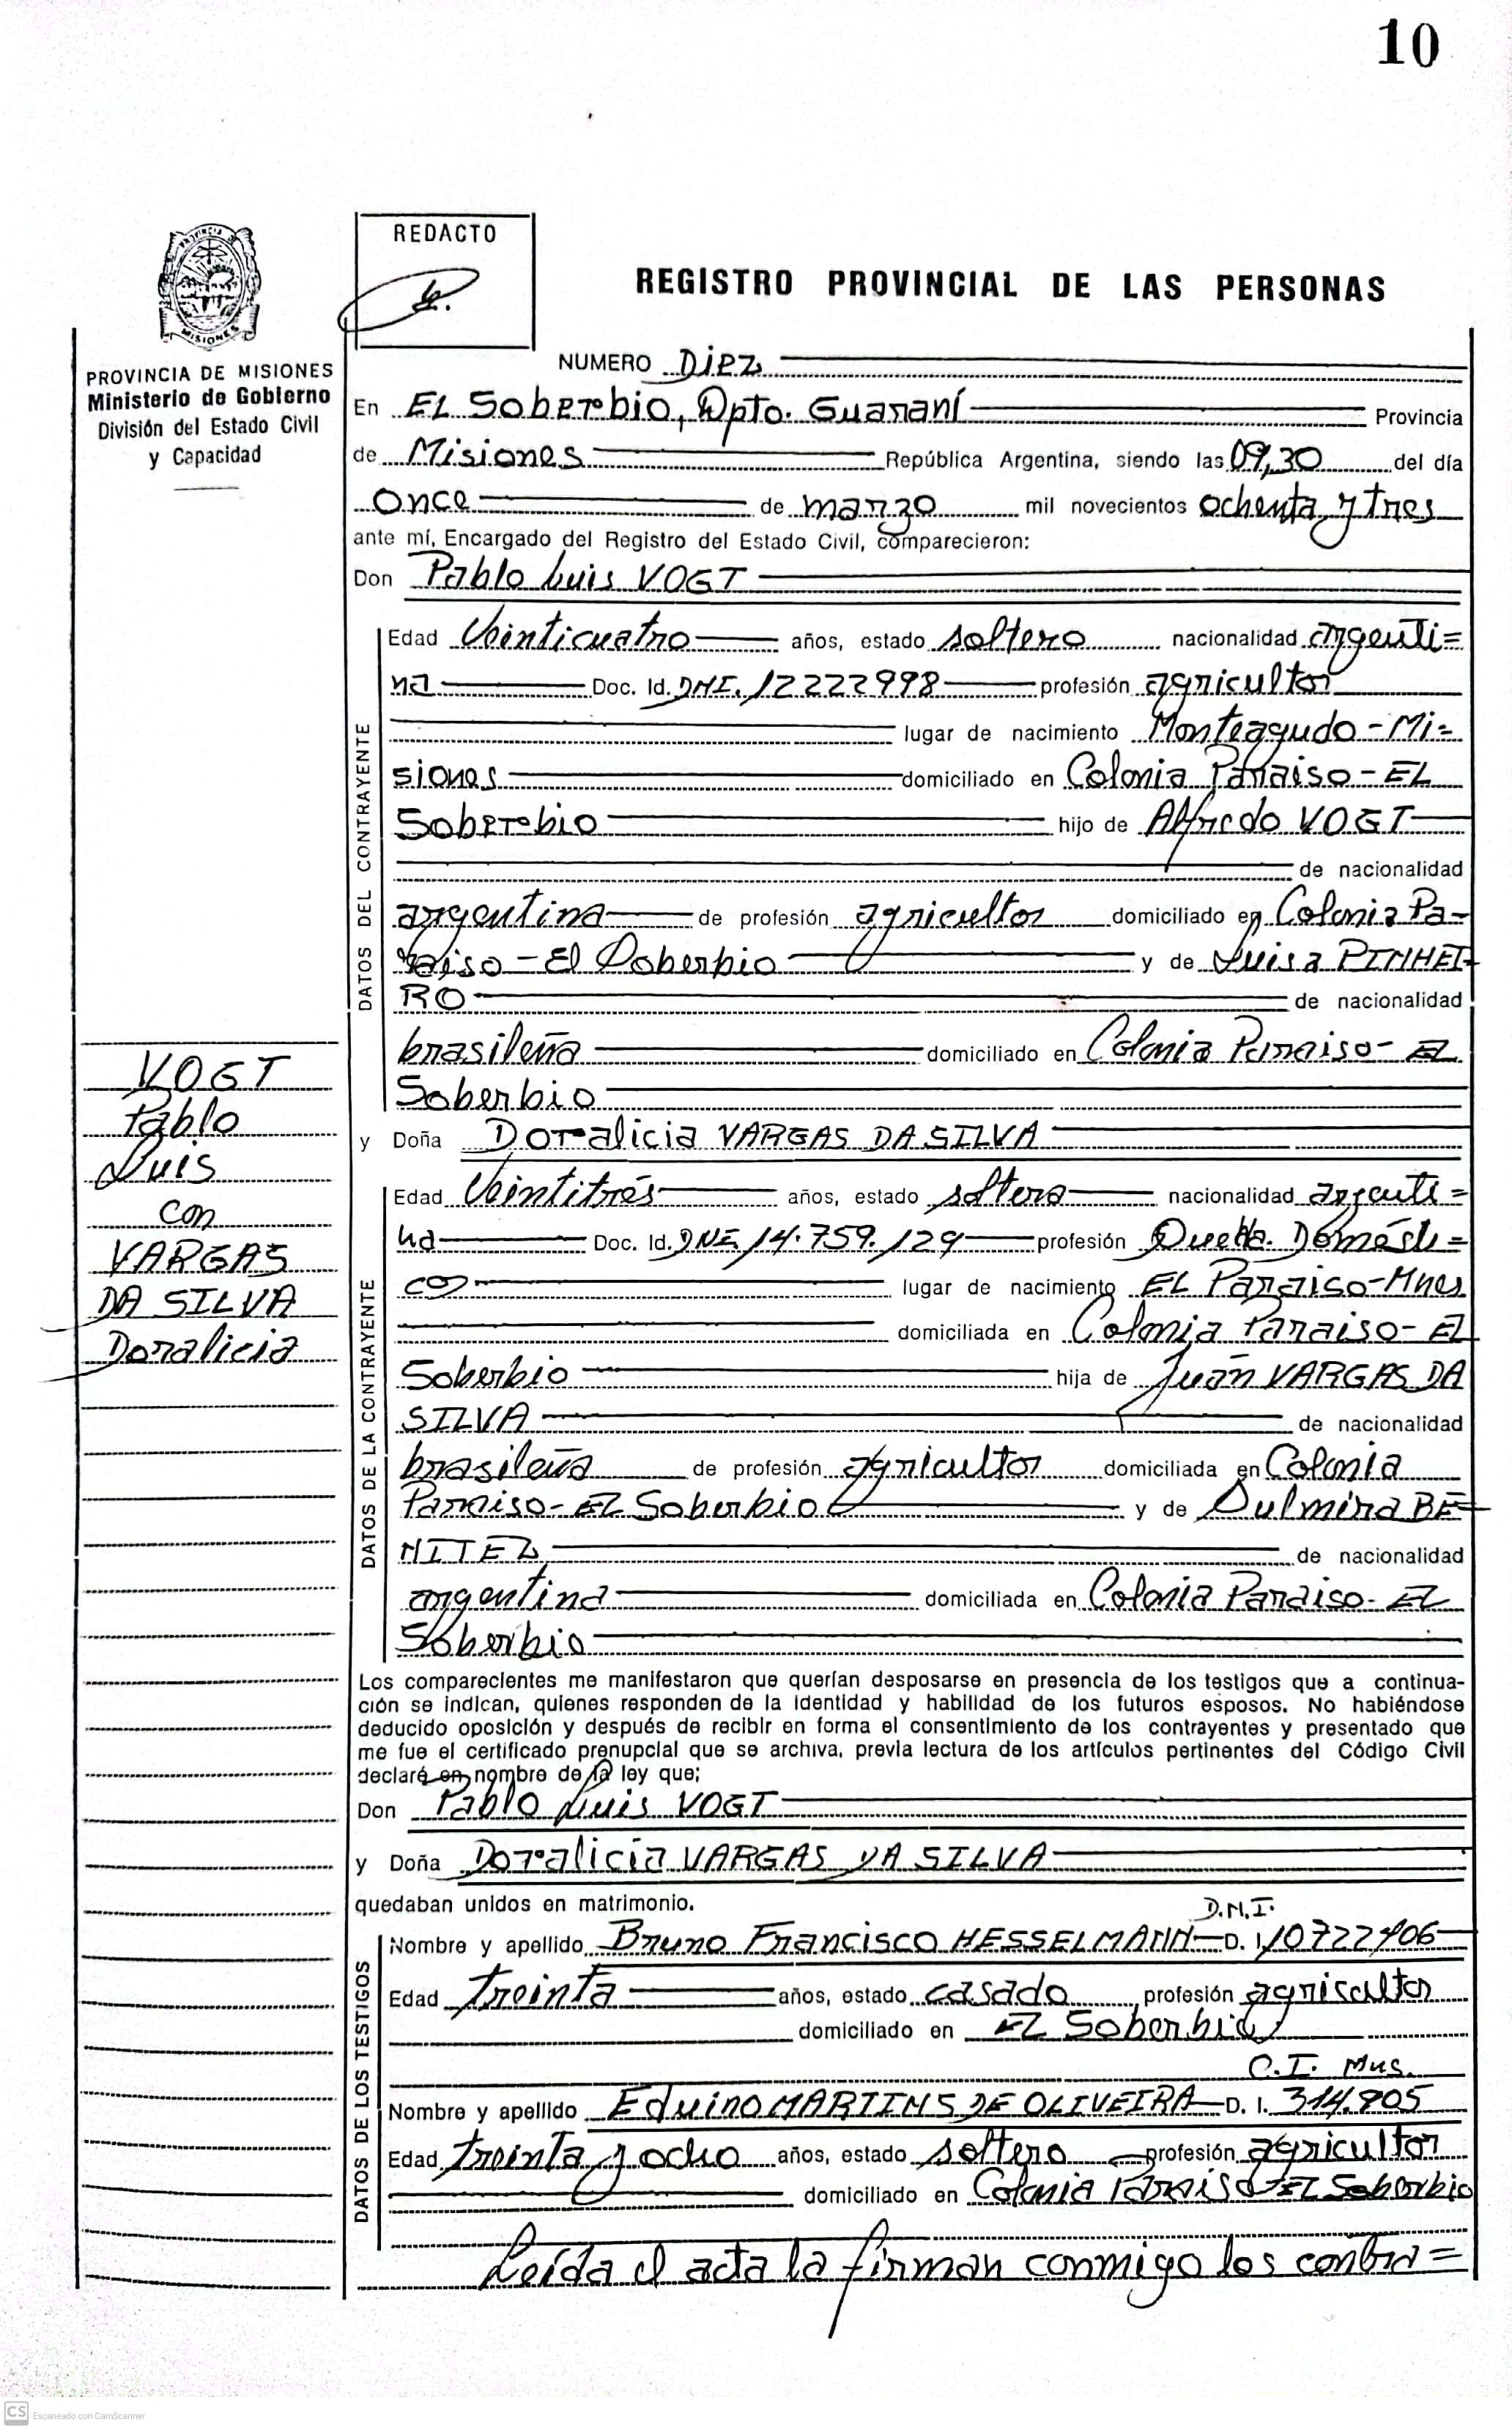 10
REDACTO
REGISTRO PROVINCIAL DE LAS PERSONAS
PROVINCIA DE MISIONES
Ministerio de Gobierno
División del Estado Civil
y Capacidad
NUMERO Diez
En EL Soberbio, Dpto. Guaraní Provincia
de Misiones República Argentina, siendo las 09,30 del día
once de marzo mil novecientos ochenta y tres
ante mí, Encargado del Registro del Estado Civil, comparecieron:
Don Pablo Luis VOGT
DATOS DEL CONTRAYENTE
Edad Veinticuatro años, estado soltero nacionalidad argenti=
na Doc. Id. DNI. 12222998 profesión agricultor
lugar de nacimiento Monteagudo-Mi=
siones domiciliado en Colonia Paraiso-EL
Soberbio hijo de Alfredo VOGT
de nacionalidad
argentina de profesión agricultor domiciliado en Colonia Pa-
raiso-El Soberbio y de Luisa PINHEI-
RO de nacionalidad
brasileña domiciliado en Colonia Paraiso-EL
Soberbio
VOGT
Pablo
Luis
con
VARGAS
DA SILVA
Doralicia
y Doña Doralicia VARGAS DA SILVA
DATOS DE LA CONTRAYENTE
Edad Veintitrés años, estado soltera nacionalidad argenti=
na Doc. Id. DNI. 14.759.129 profesión Queha. Domésti=
cos lugar de nacimiento EL Paraiso-Mnes
domiciliada en Colonia Paraiso-El
Soberbio hija de Juan VARGAS DA
SILVA de nacionalidad
brasileña de profesión agricultor domiciliada en Colonia
Paraiso-EL Soberbio y de Dulmira BE=
NITEZ de nacionalidad
argentina domiciliada en Colonia Paraiso-EL
Soberbio
Los comparecientes me manifestaron que querían desposarse en presencia de los testigos que a continua-
ción se indican, quienes responden de la identidad y habilidad de los futuros esposos. No habiéndose
deducido oposición y después de recibir en forma el consentimiento de los contrayentes y presentado que
me fue el certificado prenupcial que se archiva, previa lectura de los artículos pertinentes del Código Civil
declaré en nombre de la ley que;
Don Pablo Luis VOGT
y Doña Doralicia VARGAS DA SILVA
quedaban unidos en matrimonio.
DATOS DE LOS TESTIGOS
D.N.I.
Nombre y apellido Bruno Francisco HESSELMANN D. I. 10722906
Edad treinta años, estado casado profesión agricultor
domiciliado en EL Soberbio
C.I. Mns.
Nombre y apellido Eduino MARTINS DE OLIVEIRA D. I. 314.905
Edad treinta y ocho años, estado soltero profesión agricultor
domiciliado en Colonia Paraiso EL Soberbio
Leída el acta la firman conmigo los contra=
CS Escaneado con CamScanner